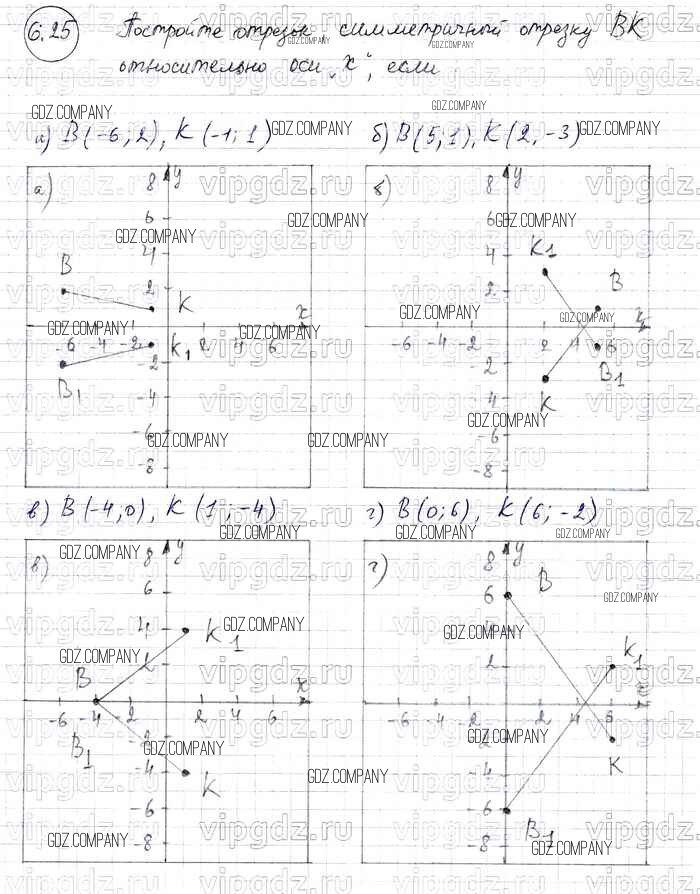 6.25 Постройте отрезок симметричный отрезку ВК
относительно оси "х", если
а) В(-6; 2), К(-1; 1) б) В(5; 1), К(2; -3)
а) 8 y
6
4
2
В
К
x
-6 -4 -2 2 4 6
К1
-2
В1
-4
-6
-8
б) 8 y
6
4
К1
2
В
x
-6 -4 -2 2 4 6
В1
-2
К
-4
-6
-8
в) В(-4; 0), К(1; -4) г) В(0; 6), К(6; -2)
в) 8 y
6
4
К1
2
В
x
-6 -4 -2 2 4 6
В1
-2
-4
К
-6
-8
г) 8 y
6
В
К1
2
-6 -4 -2 2 4
-2
К
-4
-6
В1
-8
GDZ.COMPANY
vipgdz.ru